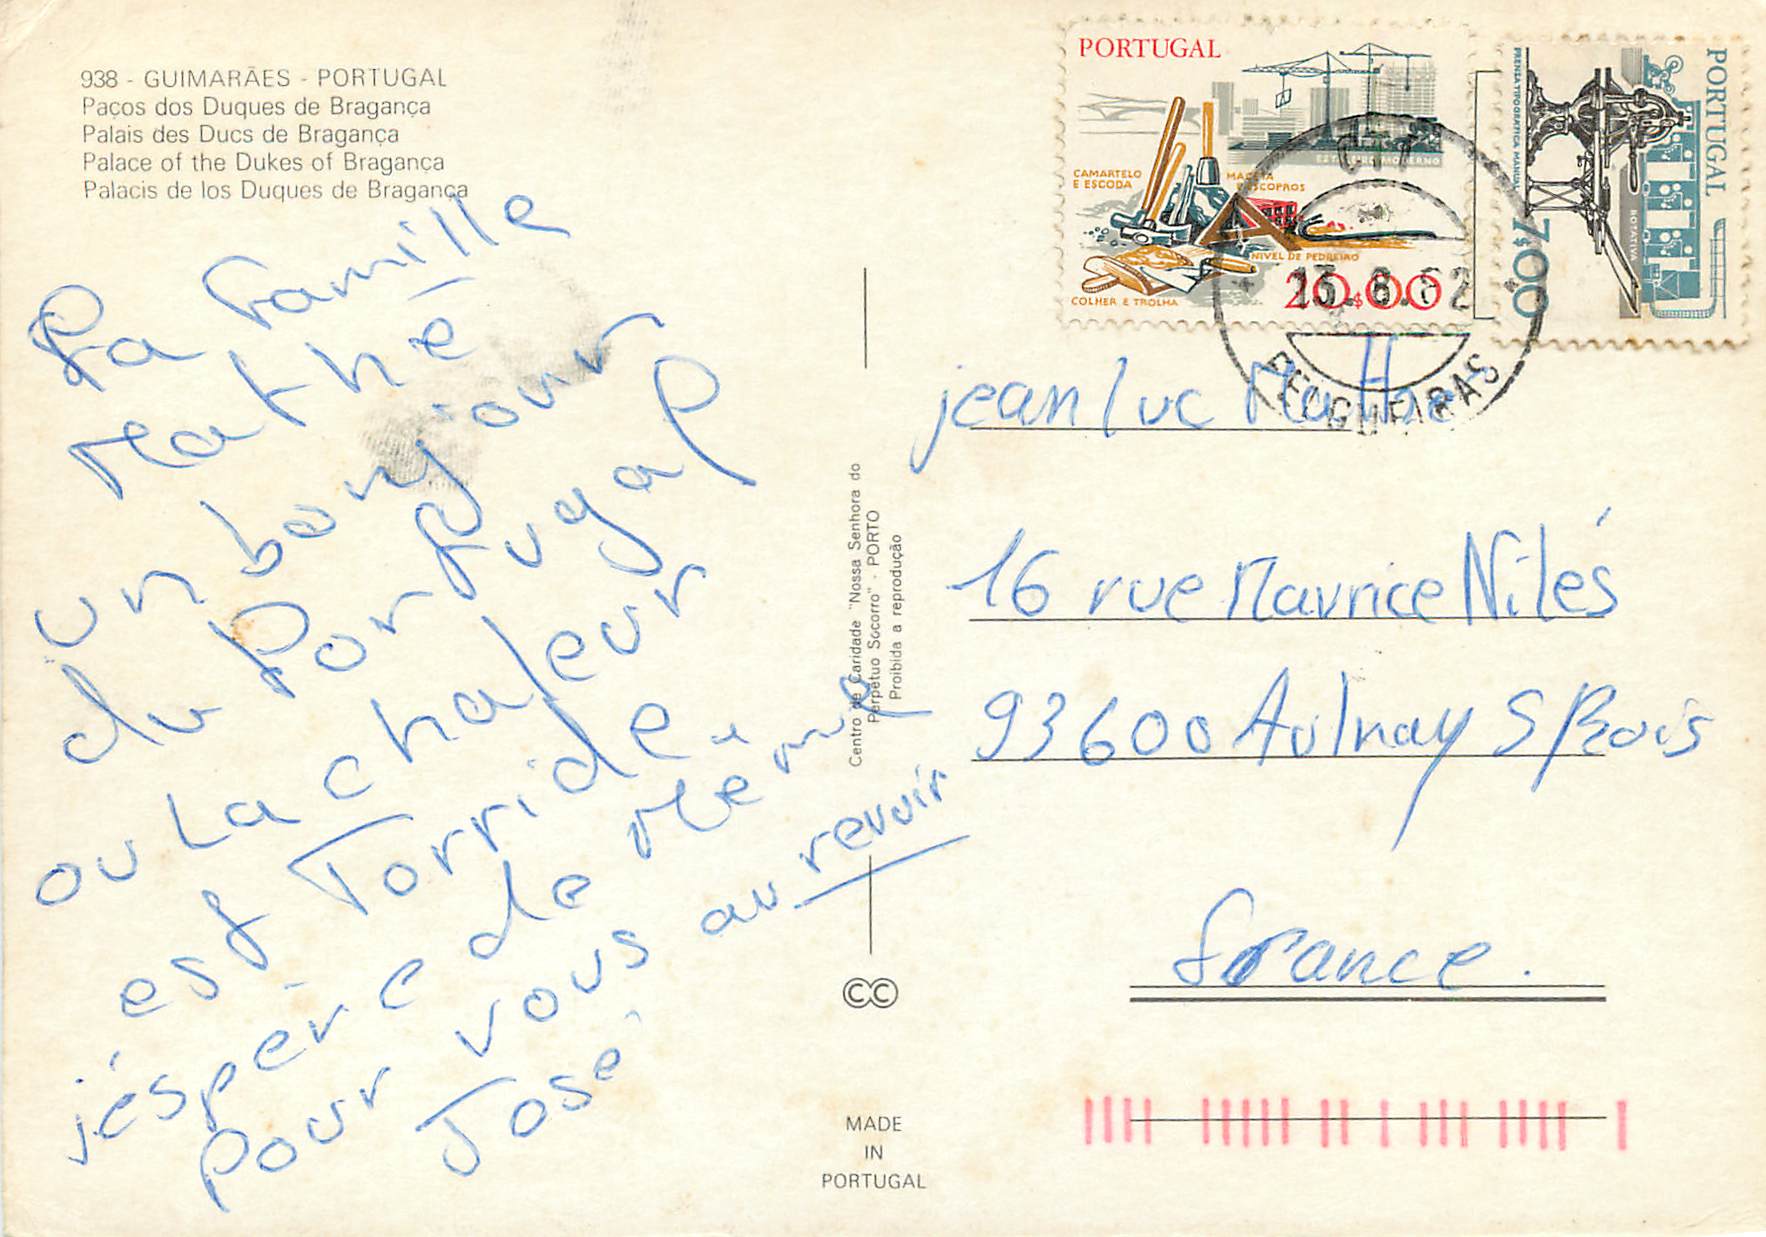 938 - GUIMARÃES - PORTUGAL
Paços dos Duques de Bragança
Palais des Ducs de Bragança
Palace of the Dukes of Bragança
Palacis de los Duques de Bragança
La famille
Mathé
un bonjour
du Portugal
ou la chaleur
est Torride
j'éspére de Même
pour vous au revoir
José
Centro de Caridade "Nossa Senhora do
Perpétuo Socorro" - PORTO
Proibida a reprodução
CC
MADE
IN
PORTUGAL
PORTUGAL
ESTALEIRO MODERNO
CAMARTELO
E ESCODA
MACETA
E ESCOPROS
NIVEL DE PEDREIRO
COLHER E TROLHA
20$00
PORTUGAL
PRENSA TIPOGRÁFICA MANUAL
ROTATIVA
7$00
CTT
13.8.82
FELGUEIRAS
jean luc Mathe
16 rue Maurice Nilés
93600 Aulnay S Bois
france.